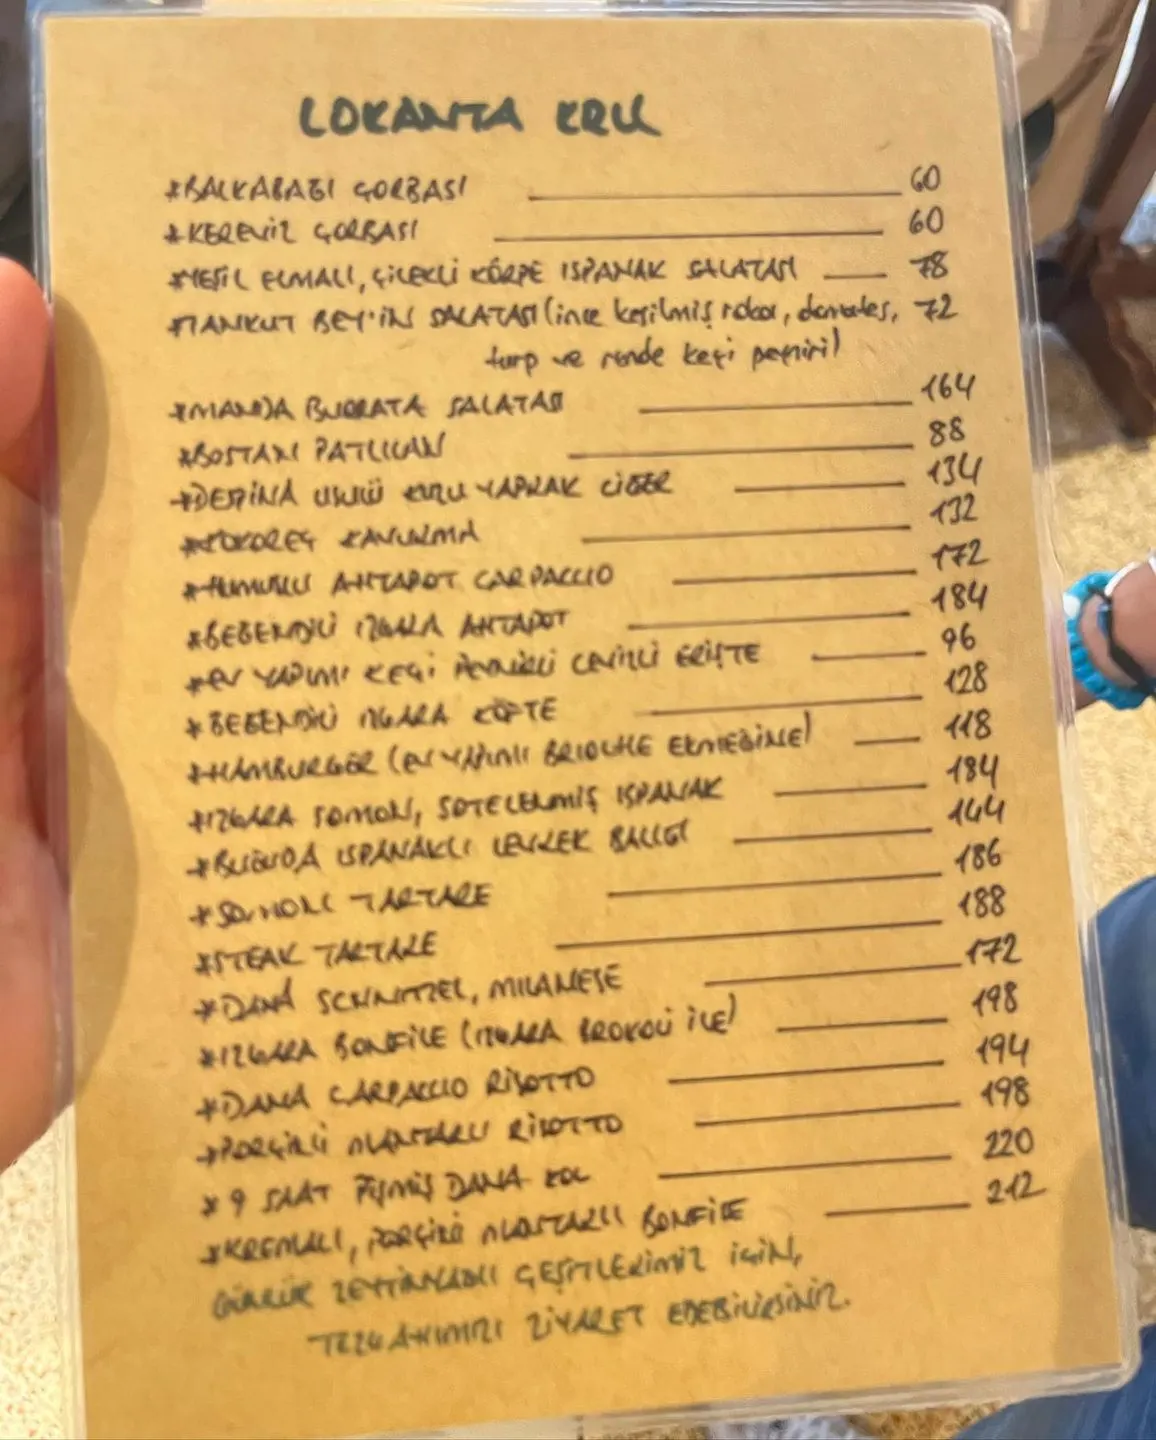 LOKANTA KRU
*BALKABAĞI ÇORBASI 60
*KEREVİZ ÇORBASI 60
*YEŞİL ELMALI, ÇİLEKLİ KÖRPE ISPANAK SALATASI 78
*TANKUT BEY'İN SALATASI (ince kesilmiş roka, domates, 72
turp ve rende keçi peyniri)
*MANDA BURRATA SALATASI 164
*BOSTANİ PATLICAN 88
*DEPİNA USULÜ KURU YAPRAK CİĞER 134
*KOKOREÇ KAVURMA 132
*HUMUSLU AHTAPOT CARPACCIO 172
*BEĞENDİLİ IZGARA AHTAPOT 184
*EV YAPIMI KEÇİ PEYNİRLİ CEVİZLİ ERİŞTE 96
*BEĞENDİLİ IZGARA KÖFTE 128
*HAMBURGER (EV YAPIMI BRIOCHE EKMEĞİNE) 118
*IZGARA SOMON, SOTELENMİŞ ISPANAK 184
*BUĞUDA ISPANAKLI LEVREK BALIĞI 144
*SOMON TARTARE 186
*STEAK TARTARE 188
*DANA SCHNITZEL, MILANESE 172
*IZGARA BONFİLE (IZGARA BROKOLİ İLE) 198
*DANA CARPACCIO RİSOTTO 194
*PORÇİNİ MANTARLI RİSOTTO 198
*9 SAAT PİŞMİŞ DANA KOL 220
*KREMALI, PORÇİNİ MANTARLI BONFİLE 212
GÜNLÜK ZEYTİNYAĞLI ÇEŞİTLERİMİZ İÇİN,
TEZGAHIMIZI ZİYARET EDEBİLİRSİNİZ.